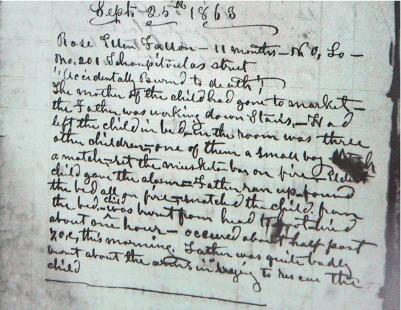 Sept. 25th 1863
Rose Ellen Fallon - 11 months - N.O, La -
No. 201 Tchoupitoulas street
"Accidentally Burned to death",
The mother of the child had gone to market -
the Father was working down Stairs, - Had
left the child in bed, in the room was three
other children, one of them a small boy
a match - set the musketo bar on fire - Eldest
child gave the alarm - Father ran up found
the bed all on fire - snatched the child from
the bed, child was burnt from head to foot died
about one hour - occured about half past
7 o.c, this morning. Father was quite badly
burnt about the arms in trying to rescue the
child